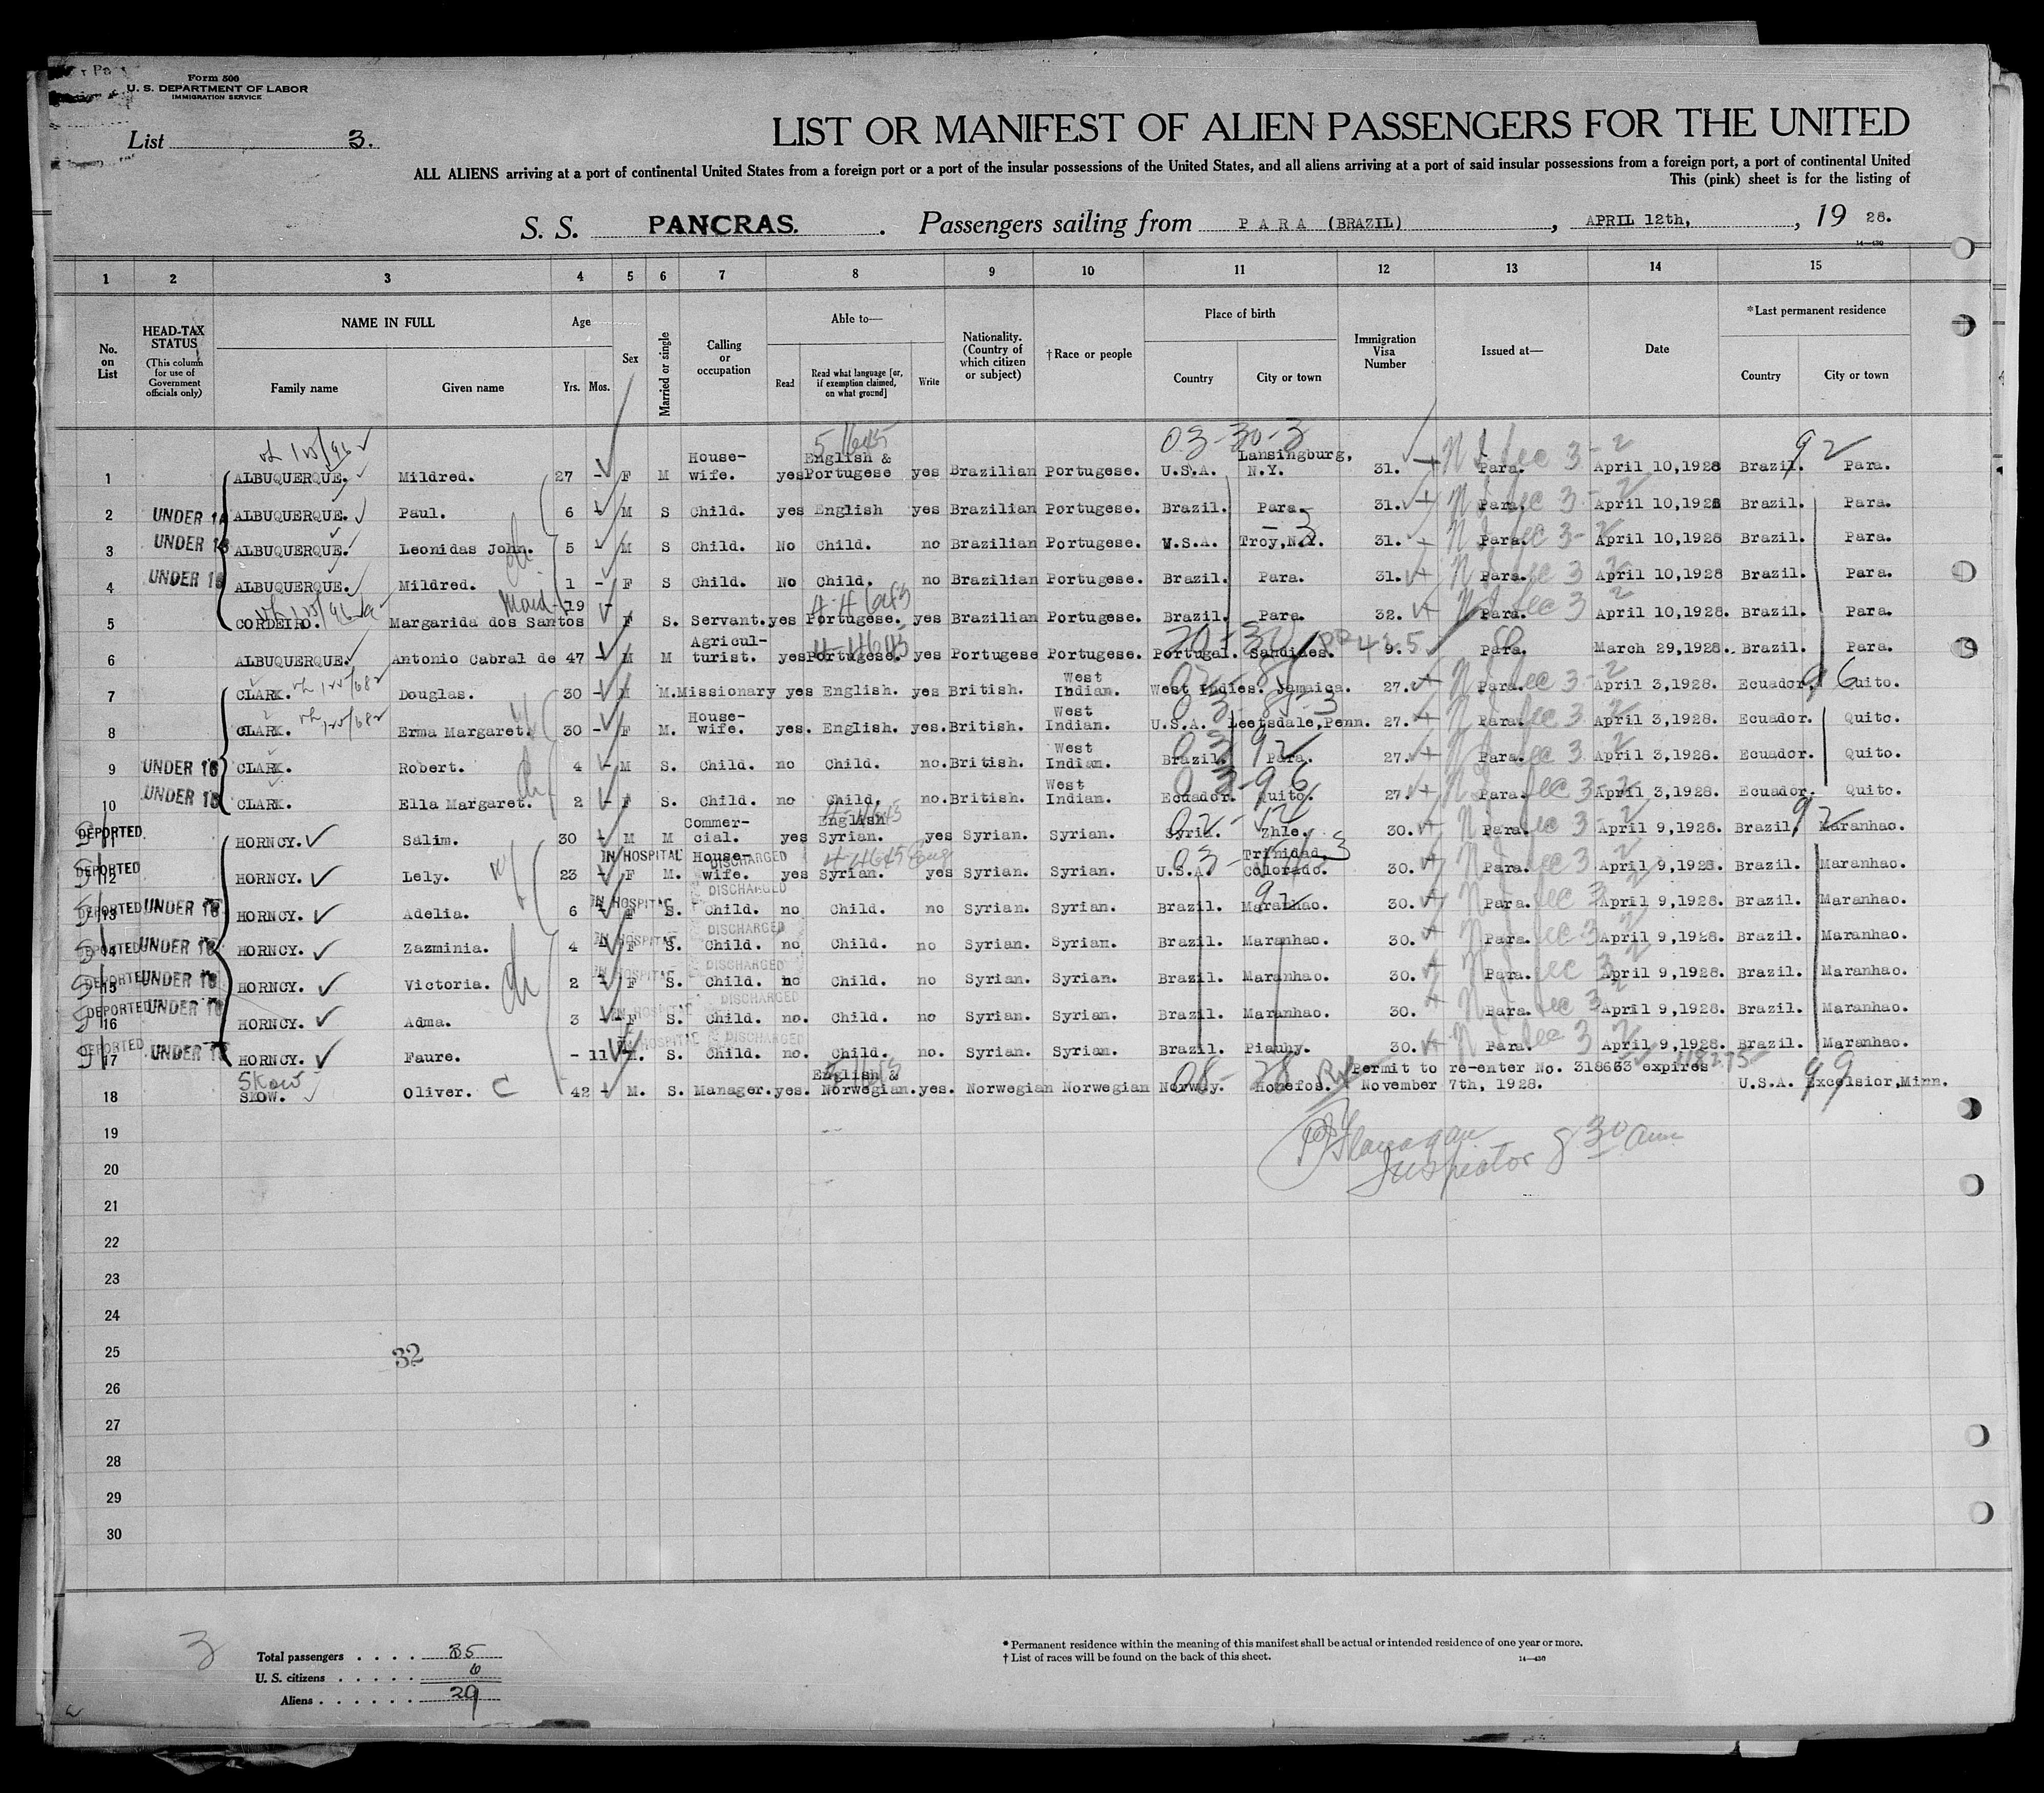 Form 500
U. S. DEPARTMENT OF LABOR
IMMIGRATION SERVICE
List 3.
LIST OR MANIFEST OF ALIEN PASSENGERS FOR THE UNITED
ALL ALIENS arriving at a port of continental United States from a foreign port or a port of the insular possessions of the United States, and all aliens arriving at a port of said insular possessions from a foreign port, a port of continental United
This (pink) sheet is for the listing of
S. S. PANCRAS. Passengers sailing from PARA (BRAZIL), APRIL 12th, , 19 28.
14—430
1 2 3 4 5 6 7 8 9 10 11 12 13 14 15
No. on List HEAD-TAX STATUS (This column for use of Government officials only) NAME IN FULL Family name Given name Age Yrs. Mos. Sex Married or single Calling or occupation Able to— Read Read what language [or, if exemption claimed, on what ground] Write Nationality. (Country of which citizen or subject) †Race or people Place of birth Country City or town Immigration Visa Number Issued at— Date *Last permanent residence Country City or town
1 ALBUQUERQUE. Mildred. 27 - F M House-wife. yes English & Portugese yes Brazilian Portugese. U.S.A. Lansingburg, N.Y. 31. Para. April 10,1928 Brazil. Para.
2 UNDER 16 ALBUQUERQUE. Paul. 6 - M S Child. yes English yes Brazilian Portugese. Brazil. Para. 31. Para. April 10,1928 Brazil. Para.
3 UNDER 16 ALBUQUERQUE. Leonidas John. 5 - M S Child. No Child. no Brazilian Portugese. U.S.A. Troy,N.Y. 31. Para. April 10,1928 Brazil. Para.
4 UNDER 16 ALBUQUERQUE. Mildred. 1 - F S Child. No Child. no Brazilian Portugese. Brazil. Para. 31. Para. April 10,1928 Brazil. Para.
5 CORDEIRO. Margarida dos Santos Maid 19 - F S. Servant. yes Portugese. yes Brazilian Portugese. Brazil. Para. 32. Para. April 10,1928. Brazil. Para.
6 ALBUQUERQUE. Antonio Cabral de 47 - M M Agricul-turist. yes Portugese. yes Portugese Portugese. Portugal. Sandides. 9. Para. March 29,1928. Brazil. Para.
7 CLARK. Douglas. 30 - M M. Missionary yes English. yes British. West Indian. West Indies. Jamaica. 27. Para. April 3,1928. Ecuador. Quito.
8 CLARK. Erma Margaret. 30 - F M. House-wife. yes. English. yes. British. West Indian. U.S.A. Leetsdale,Penn. 27. Para. April 3,1928. Ecuador. Quito.
9 UNDER 16 CLARK. Robert. 4 - M S. Child. no Child. no. British. West Indian. Brazil. Para. 27. Para. April 3,1928. Ecuador. Quito.
10 UNDER 16 CLARK. Ella Margaret. 2 - F S. Child. no Child. no. British. West Indian. Ecuador. Quito. 27. Para. April 3,1928. Ecuador. Quito.
DEPORTED 11 HORNCY. Salim. 30 - M M Commer-cial. yes English Syrian. yes Syrian. Syrian. Syria. Zhle. 30. Para. April 9,1928. Brazil. Maranhao.
DEPORTED 12 HORNCY. Lely. 23 - F M. IN HOSPITAL DISCHARGED House-wife. yes Syrian. yes Syrian. Syrian. U.S.A. Trinidad, Colorado. 30. Para. April 9,1928. Brazil. Maranhao.
DEPORTED 13 UNDER 16 HORNCY. Adelia. 6 - F S. IN HOSPITAL DISCHARGED Child. no Child. no Syrian. Syrian. Brazil. Maranhao. 30. Para. April 9,1928. Brazil. Maranhao.
DEPORTED 14 UNDER 16 HORNCY. Zazminia. 4 - F S. IN HOSPITAL DISCHARGED Child. no Child. no Syrian. Syrian. Brazil. Maranhao. 30. Para. April 9,1928. Brazil. Maranhao.
DEPORTED 15 UNDER 16 HORNCY. Victoria. 2 - F S. IN HOSPITAL DISCHARGED Child. no Child. no Syrian. Syrian. Brazil. Maranhao. 30. Para. April 9,1928. Brazil. Maranhao.
DEPORTED 16 UNDER 16 HORNCY. Adma. 3 - F S. IN HOSPITAL DISCHARGED Child. no. Child. no Syrian. Syrian. Brazil. Maranhao. 30. Para. April 9,1928. Brazil. Maranhao.
DEPORTED 17 UNDER 16 HORNCY. Faure. - 11 M. S. IN HOSPITAL DISCHARGED Child. no. Child. no. Syrian. Syrian. Brazil. Piauhy. 30. Para. April 9,1928. Brazil. Maranhao.
18 Skow SLOW. Oliver. C 42 - M. S. Manager. yes. English & Norwegian. yes. Norwegian Norwegian Norway. Honefos. Permit to re-enter No. 318663 expires November 7th, 1928. U.S.A. Excelsior,Minn.
19
Flanagan
Inspector 8 30 am
20
21
22
23
24
25
32
26
27
28
29
30
3
Total passengers . . . . 35
U. S. citizens . . . . . 6
Aliens . . . . . . 29
* Permanent residence within the meaning of this manifest shall be actual or intended residence of one year or more.
† List of races will be found on the back of this sheet.
14—430